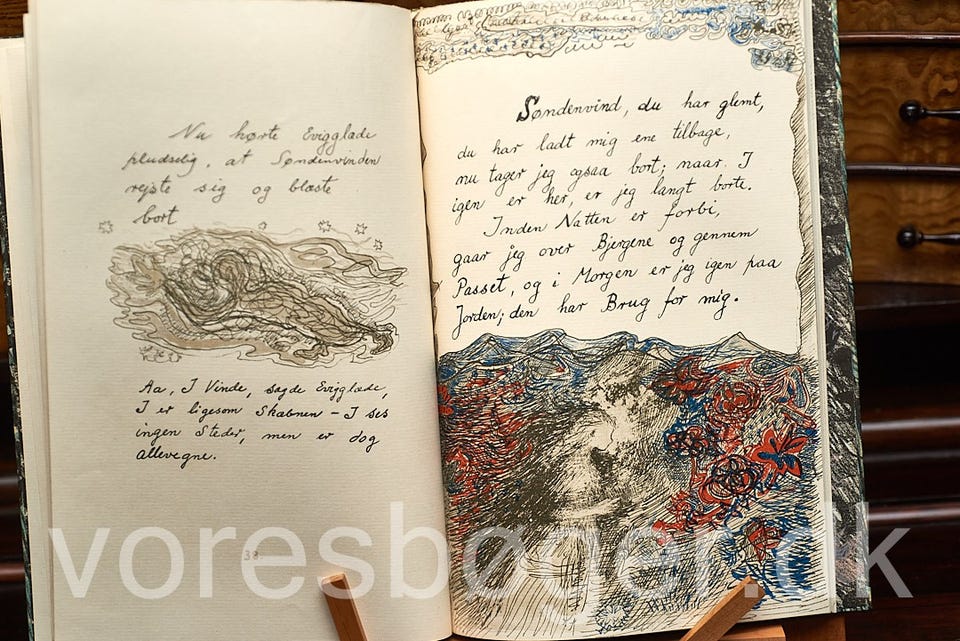 Nu hørte Evigglade
pludselig, at Søndenvinden
rejste sig og blæste
bort
Aa, I Vinde, sagde Evigglade,
I er ligesom Skæbnen – I ses
ingen Steder, men er dog
allevegne.
38
Søndenvind, du har glemt,
du har ladt mig ene tilbage,
nu tager jeg ogsaa bort; naar I
igen er her, er jeg langt borte.
Inden Natten er forbi,
gaar jeg over Bjergene og gennem
Passet, og i Morgen er jeg igen paa
Jorden; den har Brug for mig.
voresbøger.dk